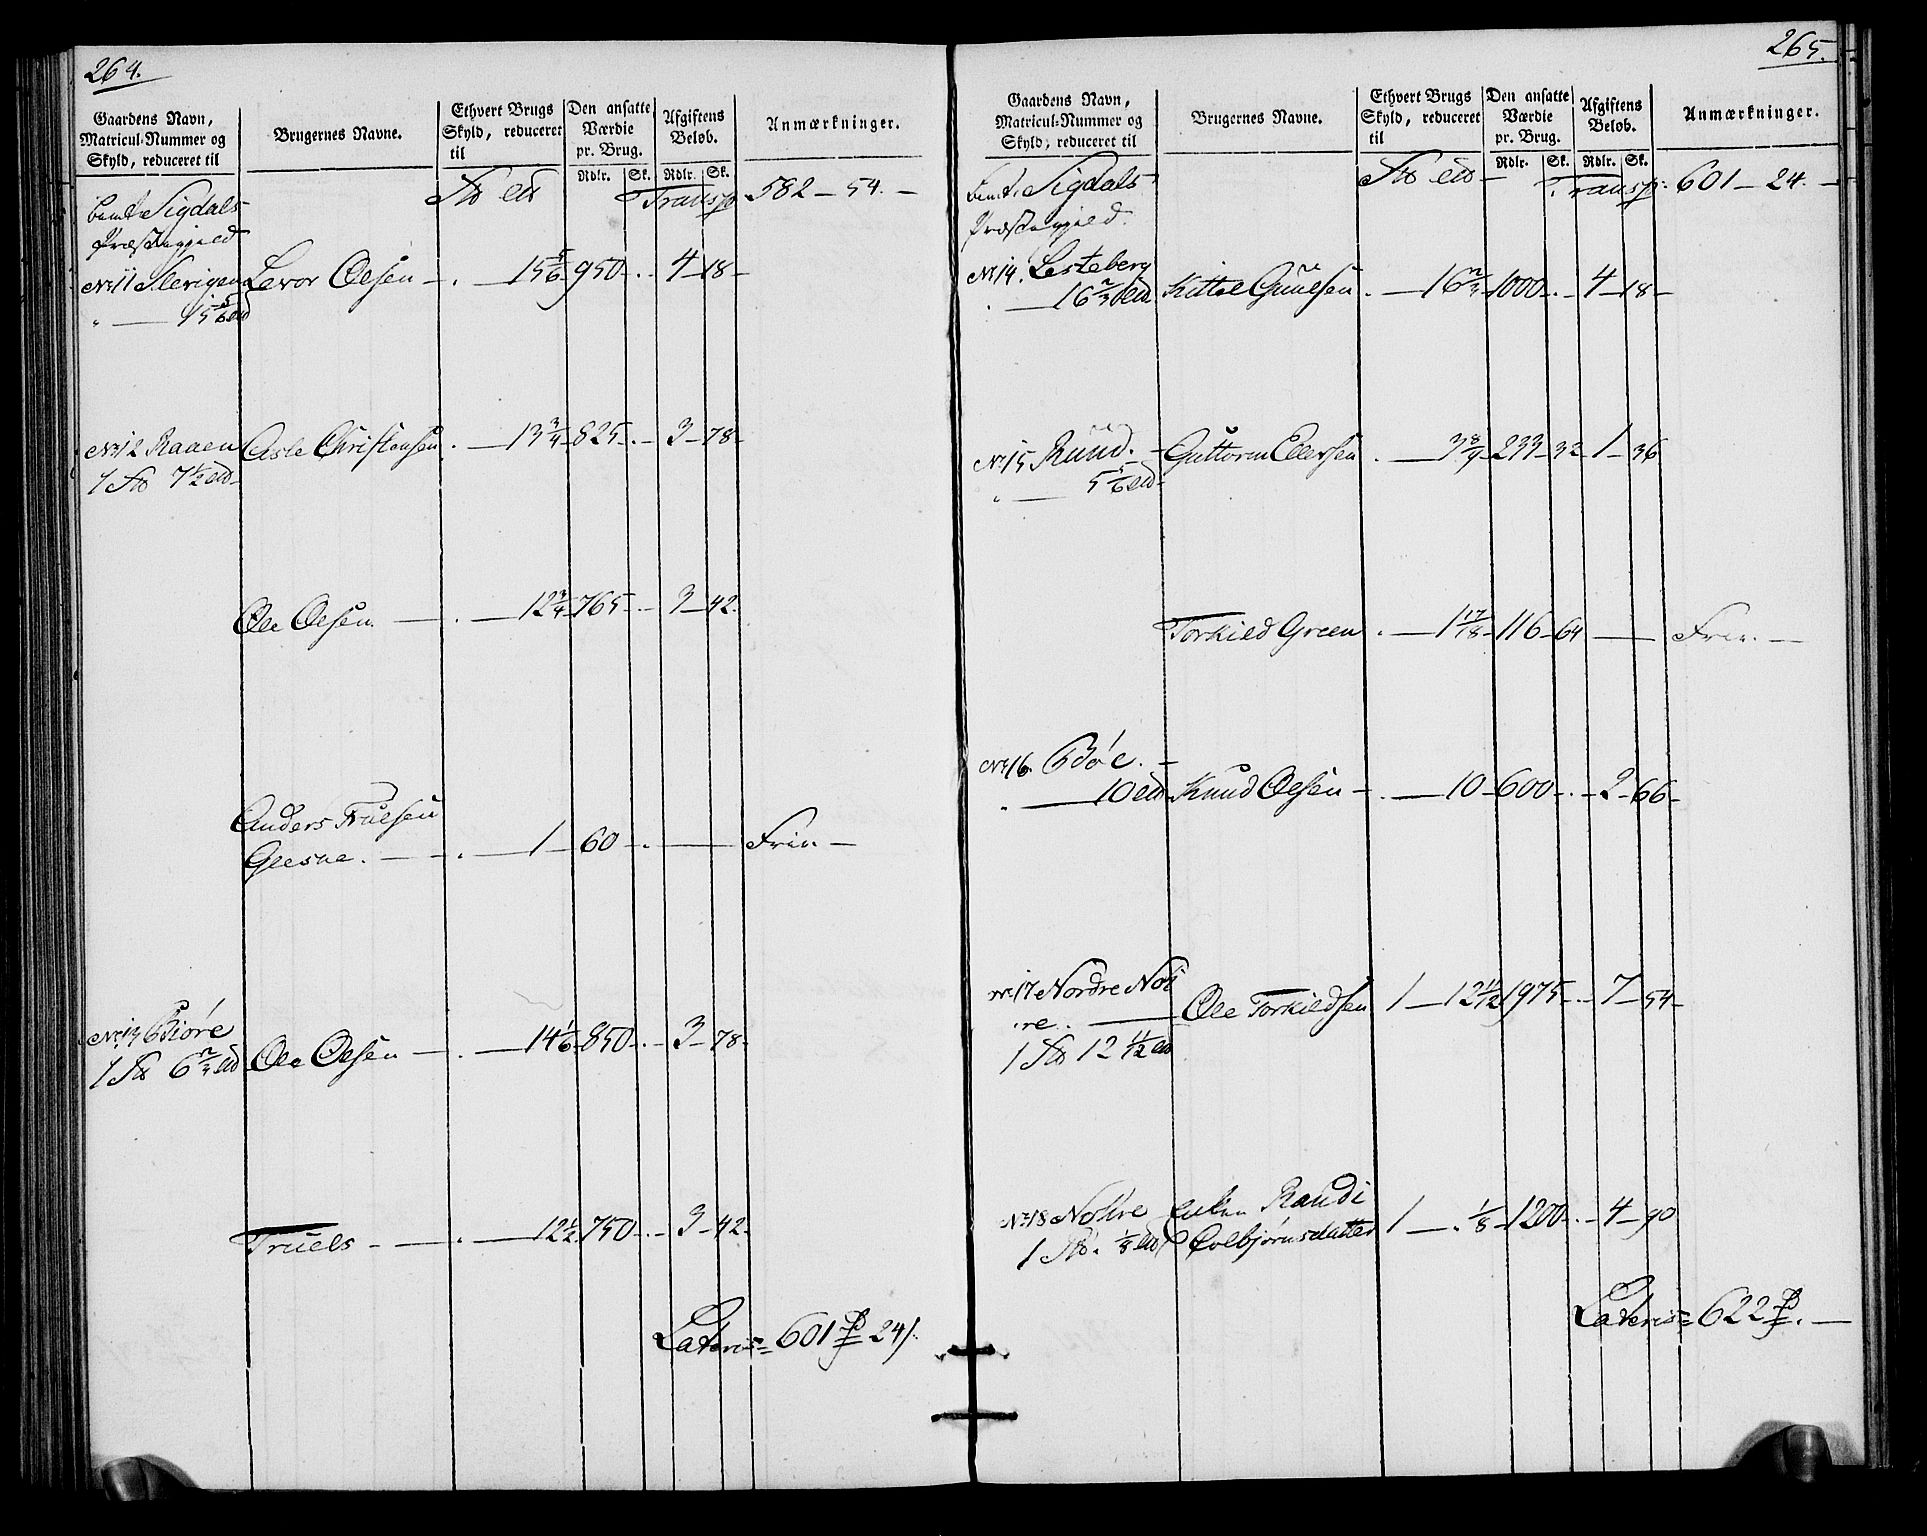 264.
Gaardens Navn,
Matricul-Nummer og
Skyld, reduceret til
Brugernes Navne.
Ethvert Brugs
Skyld, reduceret
til
Den ansatte
Værdie
pr. Brug.
Rdlr. Sk.
Afgiftens
Beløb.
Rdlr. Sk.
Anmærkninger.
Sigdals Transp 582 – 54. –
Præstegield
No 11 Levor Olsen – . – 15 5/6 – 950 – . – 4 – 18 –
" — 15 5/6
No 12 Raaen Asle Christensen . – 13 3/4 – 825 – . – 3 – 78 –
1 7 1/2
Ole Olsen. — . – 12 3/4 – 765 – . – 3 – 42.
Anders Truelsen
. – . – 1 – 60 – . — Frie –
No 13 Biøre
1 6 2/3 Ole Olsen – . – 14 1/6 – 850 – . – 3 – 78 –
Truels – — . – 12 1/2 – 750 – . – 3 – 42 –
Lateris = 601 24
265.
Gaardens Navn,
Matricul-Nummer og
Skyld, reduceret til
Brugernes Navne.
Ethvert Brugs
Skyld, reduceret
til
Den ansatte
Værdie
pr. Brug.
Rdlr. Sk.
Afgiftens
Beløb.
Rdlr. Sk.
Anmærkninger.
Sigdals Transp: 601 – 24. –
Præstegield.
No 14. Lesteberg
. — 16 2/3 Kittel . – 16 2/3 – 1000 – . – 4 – 18 –
No 15 Ruud. – Guttorm Ellefsen . – 3 8/9 – 233 – 32 – 1 – 36
" — 5 5/6
Torkild Green . – 1 17/18 – 116 – 64 — Frie. –
No 16. Bøe. –
" — 10 Knud Olsen – . – 10 – 600 – . – 2 – 66 –
No 17 Nordre Noi
re. — Ole Torkildsen 1 – 12 11/12 – 1975 – . – 7 – 54 –
1 12 11/12
No 18 Enken Randi
1 1/8 Colbjørnsdatter 1 – . 1/8 – 1200 – . – 4 – 90
Lateris = 622 . –